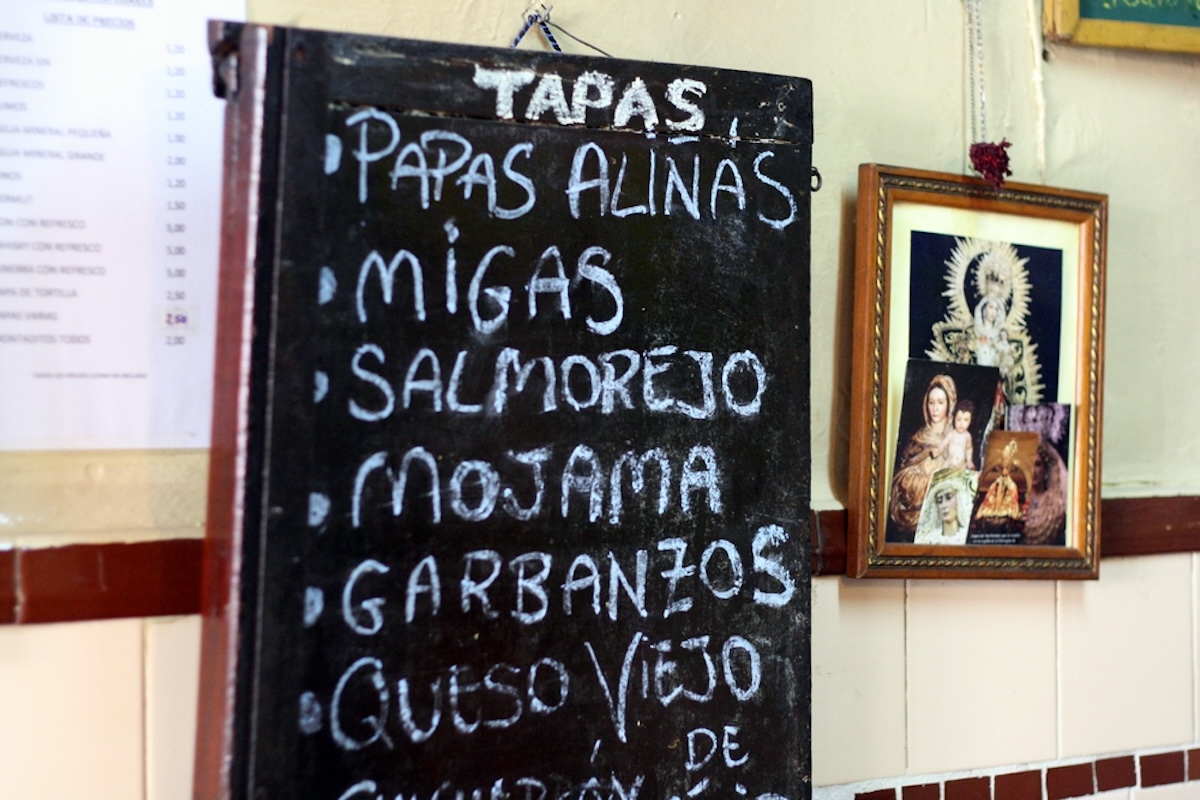 LISTA DE PRECIOS
ERVEZA 1,20
ERVEZA SIN 1,20
EFRESCOS 1,20
UMOS 1,20
GUA MINERAL PEQUEÑA 1,00
GUA MINERAL GRANDE 2,00
INOS 1,20
ERMUT 1,50
CON REFRESCO 5,00
HISKY CON REFRESCO 5,00
INEBRA CON REFRESCO 5,00
APA DE TORTILLA 2,50
APAS VARIAS 2,50
ONTADITOS TODOS 2,00
TAPAS
PAPAS ALIÑÁS
MIGAS
SALMOREJO
MOJAMA
GARBANZOS
QUESO VIEJO
DE